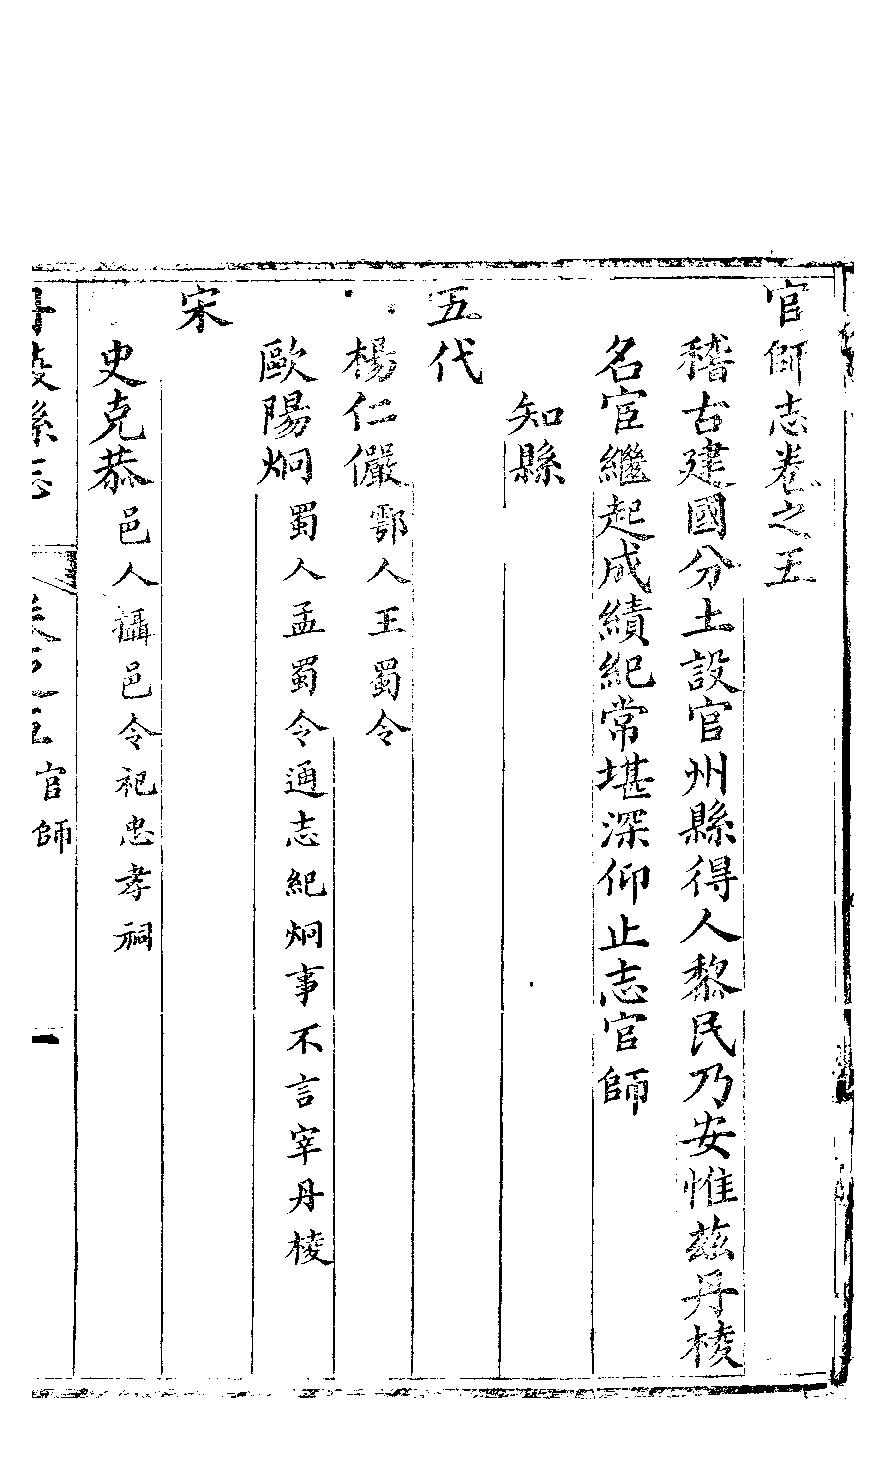 官師志卷之五
稽古建國分土設官州縣得人黎民乃安惟茲丹棱
名宦繼起成績紀常堪深仰止志官師
知縣
五代
楊仁儼鄠人王蜀令
歐陽炯蜀人孟蜀令通志紀炯事不言宰丹棱
宋
史克恭邑人攝邑令祀忠孝祠
丹棱縣志 卷之五 官師 一